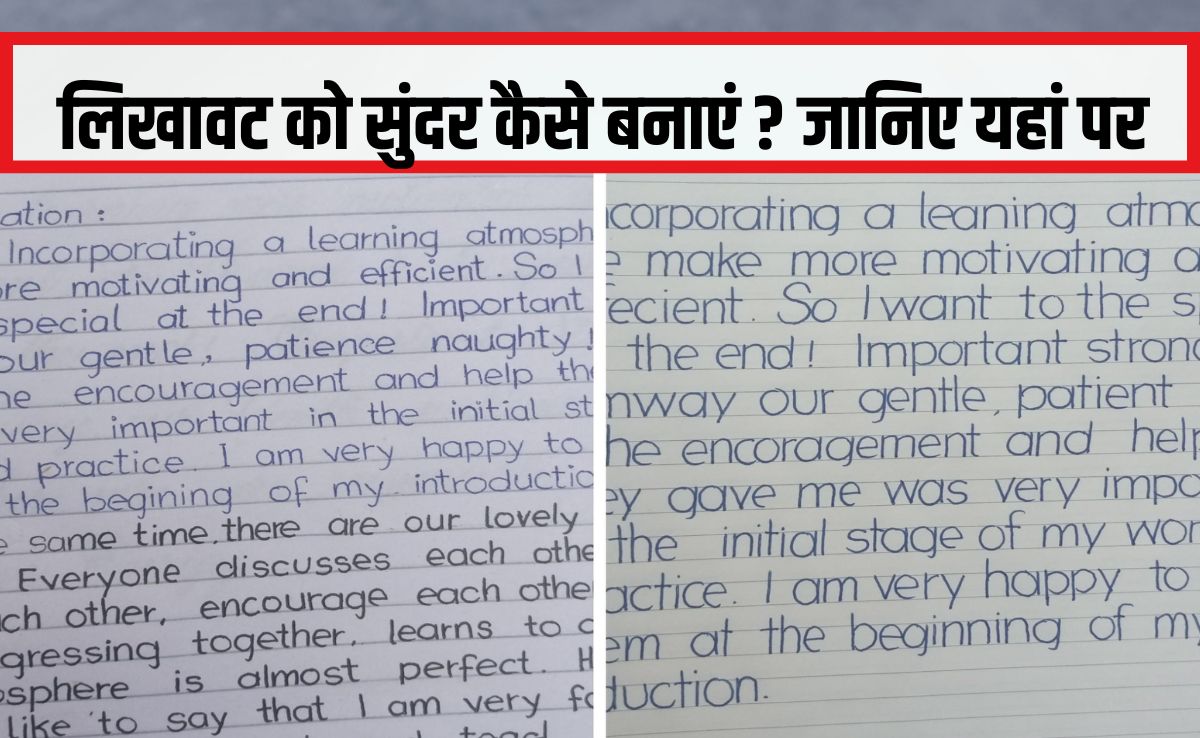 लिखावट को सुंदर कैसे बनाएं ? जानिए यहां पर
ation :
Incorporating a learning atmosph
re motivating and efficient. So I
special at the end! Important
our gentle, patience naughty!
he encouragement and help the
very important in the initial st
d practice. I am very happy to
the begining of my introductio
e same time, there are our lovely
Everyone discusses each othe
ch other, encourage each othe
gressing together, learns to
osphere is almost perfect. H
like to say that I am very fo
corporating a leaning atmo
e make more motivating a
fecient. So I want to the s
the end! Important strong
nway our gentle, patient
he encoragement and help
ey gave me was very impo
the initial stage of my wor
actice. I am very happy to
em at the beginning of my
duction.